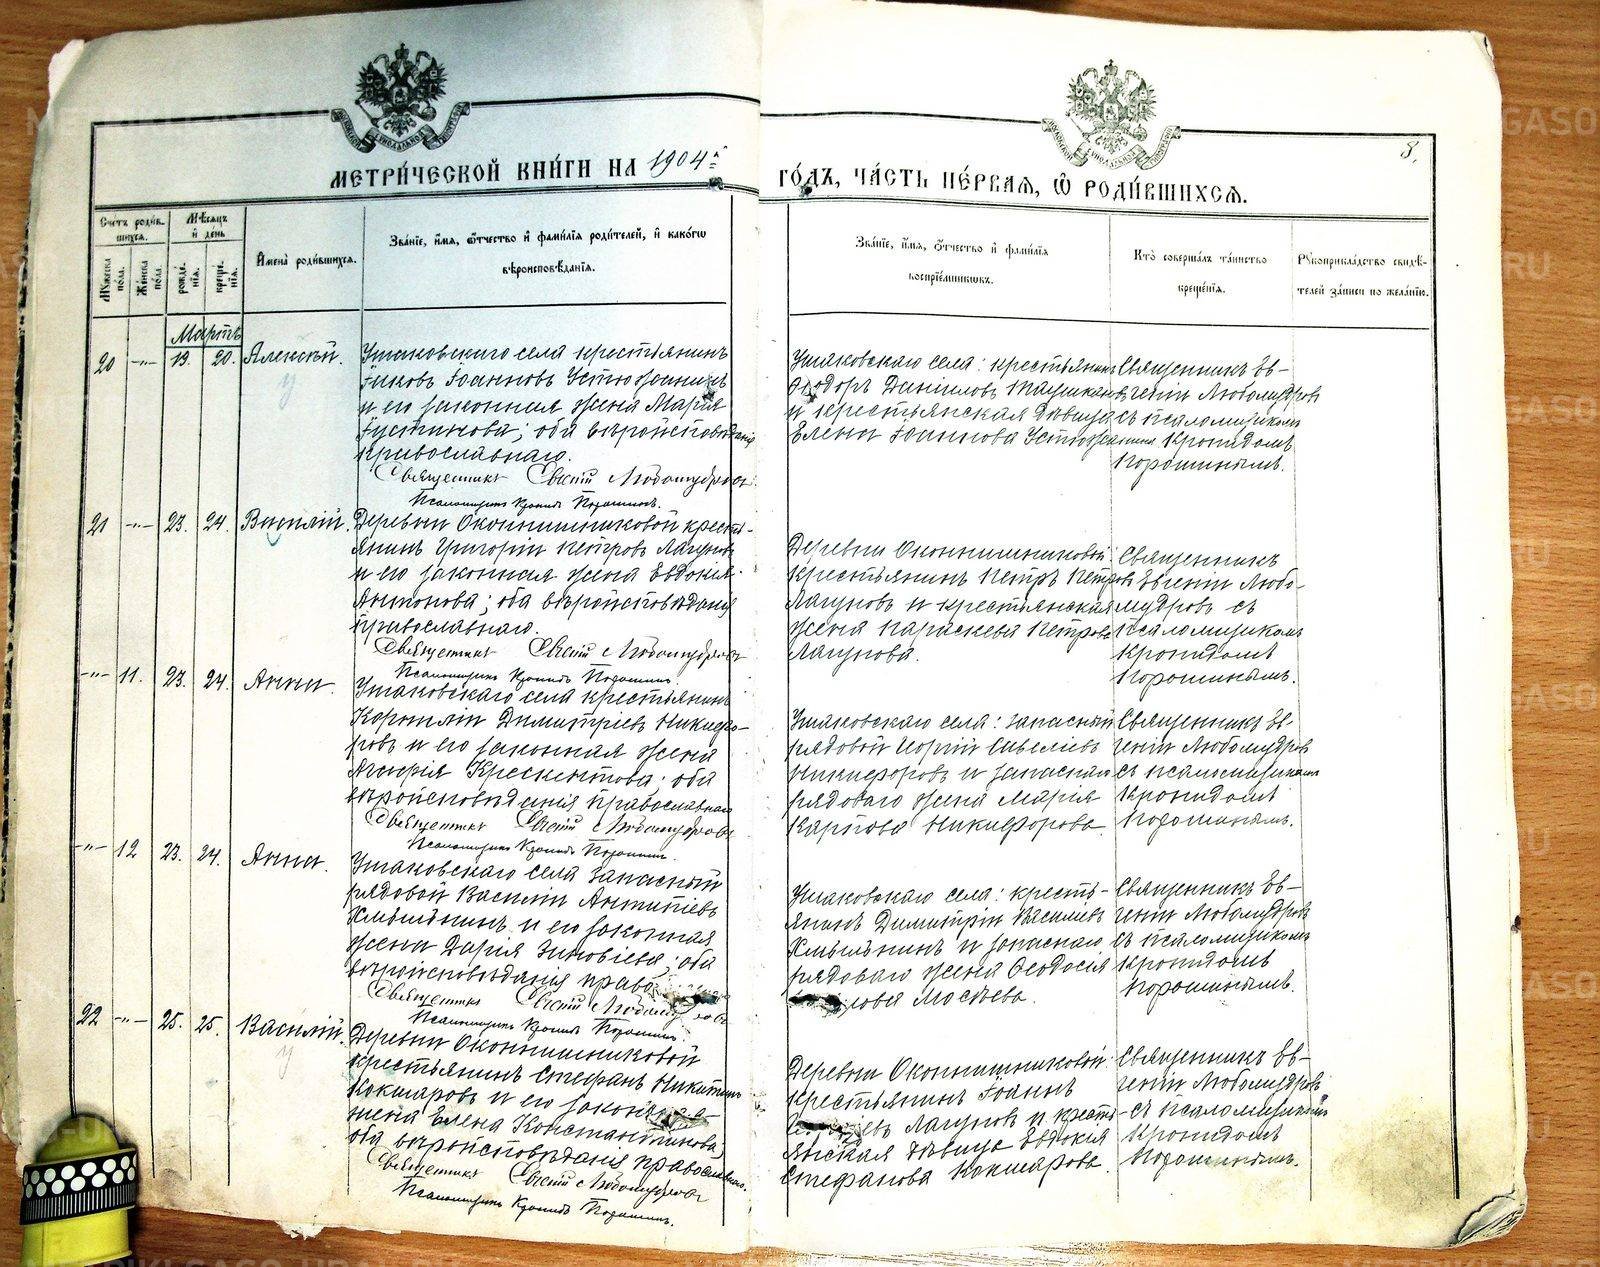 МЕТРИ́ЧЕСКОЙ КНИ́ГИ НА 1904й
ГО́ДЪ, ЧА́СТЬ ПЕ́РВАѦ, Ѽ РОДИ́ВШИХСѦ.
8.
Счетъ роди́в-
шихсѧ.
Мѣ́сѧцъ
и҆ де́нь
И҆мена̀ роди́вшихсѧ.
Зва́нїе, и҆́мѧ, ѻ҆́тчество и҆ фами́лїѧ роди́телей, и҆ како́гѡ
вѣроисповѣ́данїѧ.
Му́жеска по́ла.
Же́нска по́ла.
рожде́-нїѧ.
креще́-нїѧ.
Зва́нїе, и҆́мѧ, ѻ҆́тчество и҆ фами́лїѧ
воспрїе́мникѡвъ.
Кто̀ соверша́лъ та́инство
креще́нїѧ.
Рꙋкоприкла́дство свидѣ́-
телей за́писи по жела́нїю.
Мартъ
20 —„— 19. 20. Алексѣй.
Ушаковскаго села крестьянинъ
Іаковъ Іоанновъ Устюжанинъ
и его законная жена Марія
Іустинова; оба вѣроисповѣданія
православнаго.
Священникъ Евгеній Любомудровъ
Псаломщикъ Кронидъ Порошинъ.
Ушаковскаго села: крестьянинъ
Ѳеодоръ Даниловъ
и крестьянская дѣвица
Елена Іоаннова Устюжанина
Священникъ Ев-
геній Любомудровъ
съ псаломщикомъ
Кронидомъ
Порошинымъ.
21 —„— 23. 24. Василій.
Деревни Оконишниковой кресть-
янинъ Григорій Петровъ Лагуновъ
и его законная жена Евдокія
Антонова; оба вѣроисповѣданія
православнаго.
Священникъ Евгеній Любомудровъ
Псаломщикъ Кронидъ Порошинъ.
Деревни Оконишниковой:
крестьянинъ Петръ Петровъ
Лагуновъ и крестьянская
жена Параскева Петрова
Лагунова.
Священникъ
Евгеній Любо-
мудровъ съ
псаломщикомъ
Кронидомъ
Порошинымъ.
—„— 11. 23. 24. Анна.
Ушаковскаго села крестьянинъ
Корнилій Димитріевъ Никифо-
ровъ и его законная жена
Крескентова; оба
вѣроисповѣданія православнаго
Священникъ Евгеній Любомудровъ
Псаломщикъ Кронидъ Порошинъ.
Ушаковскаго села: запасный
рядовой Георгій Савеліевъ
Никифоровъ и запаснаго
рядоваго жена Марія
Карпова Никифорова.
Священникъ Ев-
геній Любомудровъ
съ псаломщикомъ
Кронидомъ
Порошинымъ.
—„— 12 23. 24. Анна.
Ушаковскаго села запасный
рядовой Василій Антипіевъ
и его законная
жена Дарія Зиновіева; оба
вѣроисповѣданія право
Священникъ Евгеній Любомудровъ
Псаломщикъ Кронидъ Порошинъ.
Ушаковскаго села: кресть-
янинъ Димитрій Василіевъ
и запаснаго
рядоваго жена Ѳеодосія
Мосѣева.
Священникъ Ев-
геній Любомудровъ
съ псаломщикомъ
Кронидомъ
Порошинымъ.
22 —„— 25. 25. Василій.
Деревни Оконишниковой
крестьянинъ Стефанъ Никитинъ
Кокшаровъ и его законная
жена Елена Константинова;
оба вѣроисповѣданія православнаго.
Священникъ Евгеній Любомудровъ
Псаломщикъ Кронидъ Порошинъ.
Деревни Оконишниковой:
крестьянинъ Іоаннъ
Лагуновъ и кресть-
янская дѣвица Евдокія
Стефанова Кокшарова.
Священникъ Ев-
геній Любомудровъ
съ псаломщикомъ
Кронидомъ
Порошинымъ.